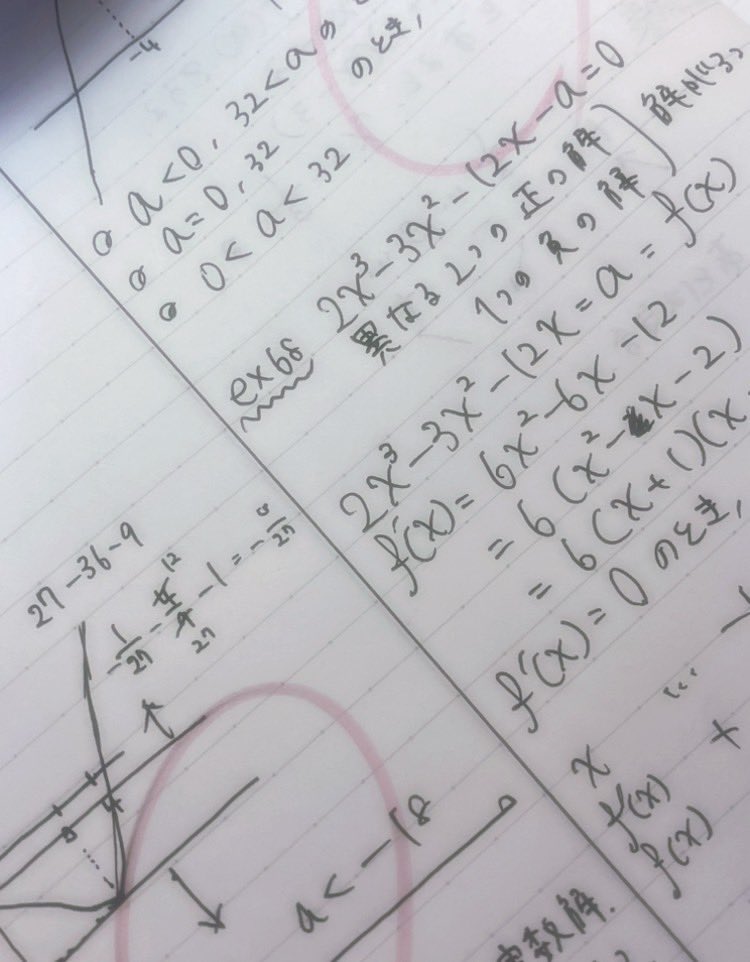 -4
a<0, 32<a の
のとき,
a=0, 32
0<a<32
ex68 2x³-3x²-12x-a=0
異なる2つの正の解
1つの負の解
解が
2x³-3x²-12x=a=f(x)
f'(x)=6x²-6x-12
=6(x²-x-2)
=6(x+1)(x
f'(x)=0 のとき,
x ...
f'(x) +
f(x)
27-36-9
a<-18
実数解.